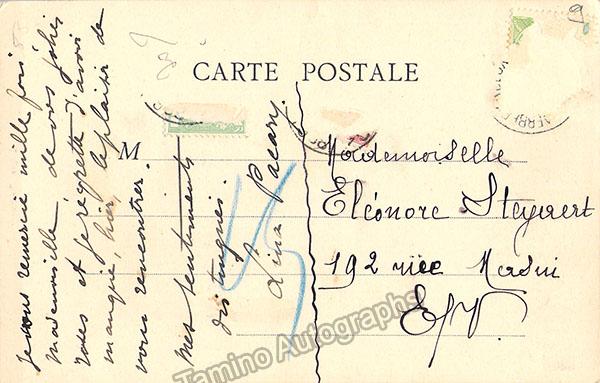 CARTE POSTALE
M
Je vous remercie mille fois
mademoiselle de vos jolies
roses et je regrette d'avoir
manqué, hier, le plaisir de
vous rencontrer.
Mes sentiments
distingués.
Lina Pacary.
Mademoiselle
Eléonore Steyaert
192 rue
E/V.
Tamino Autographs